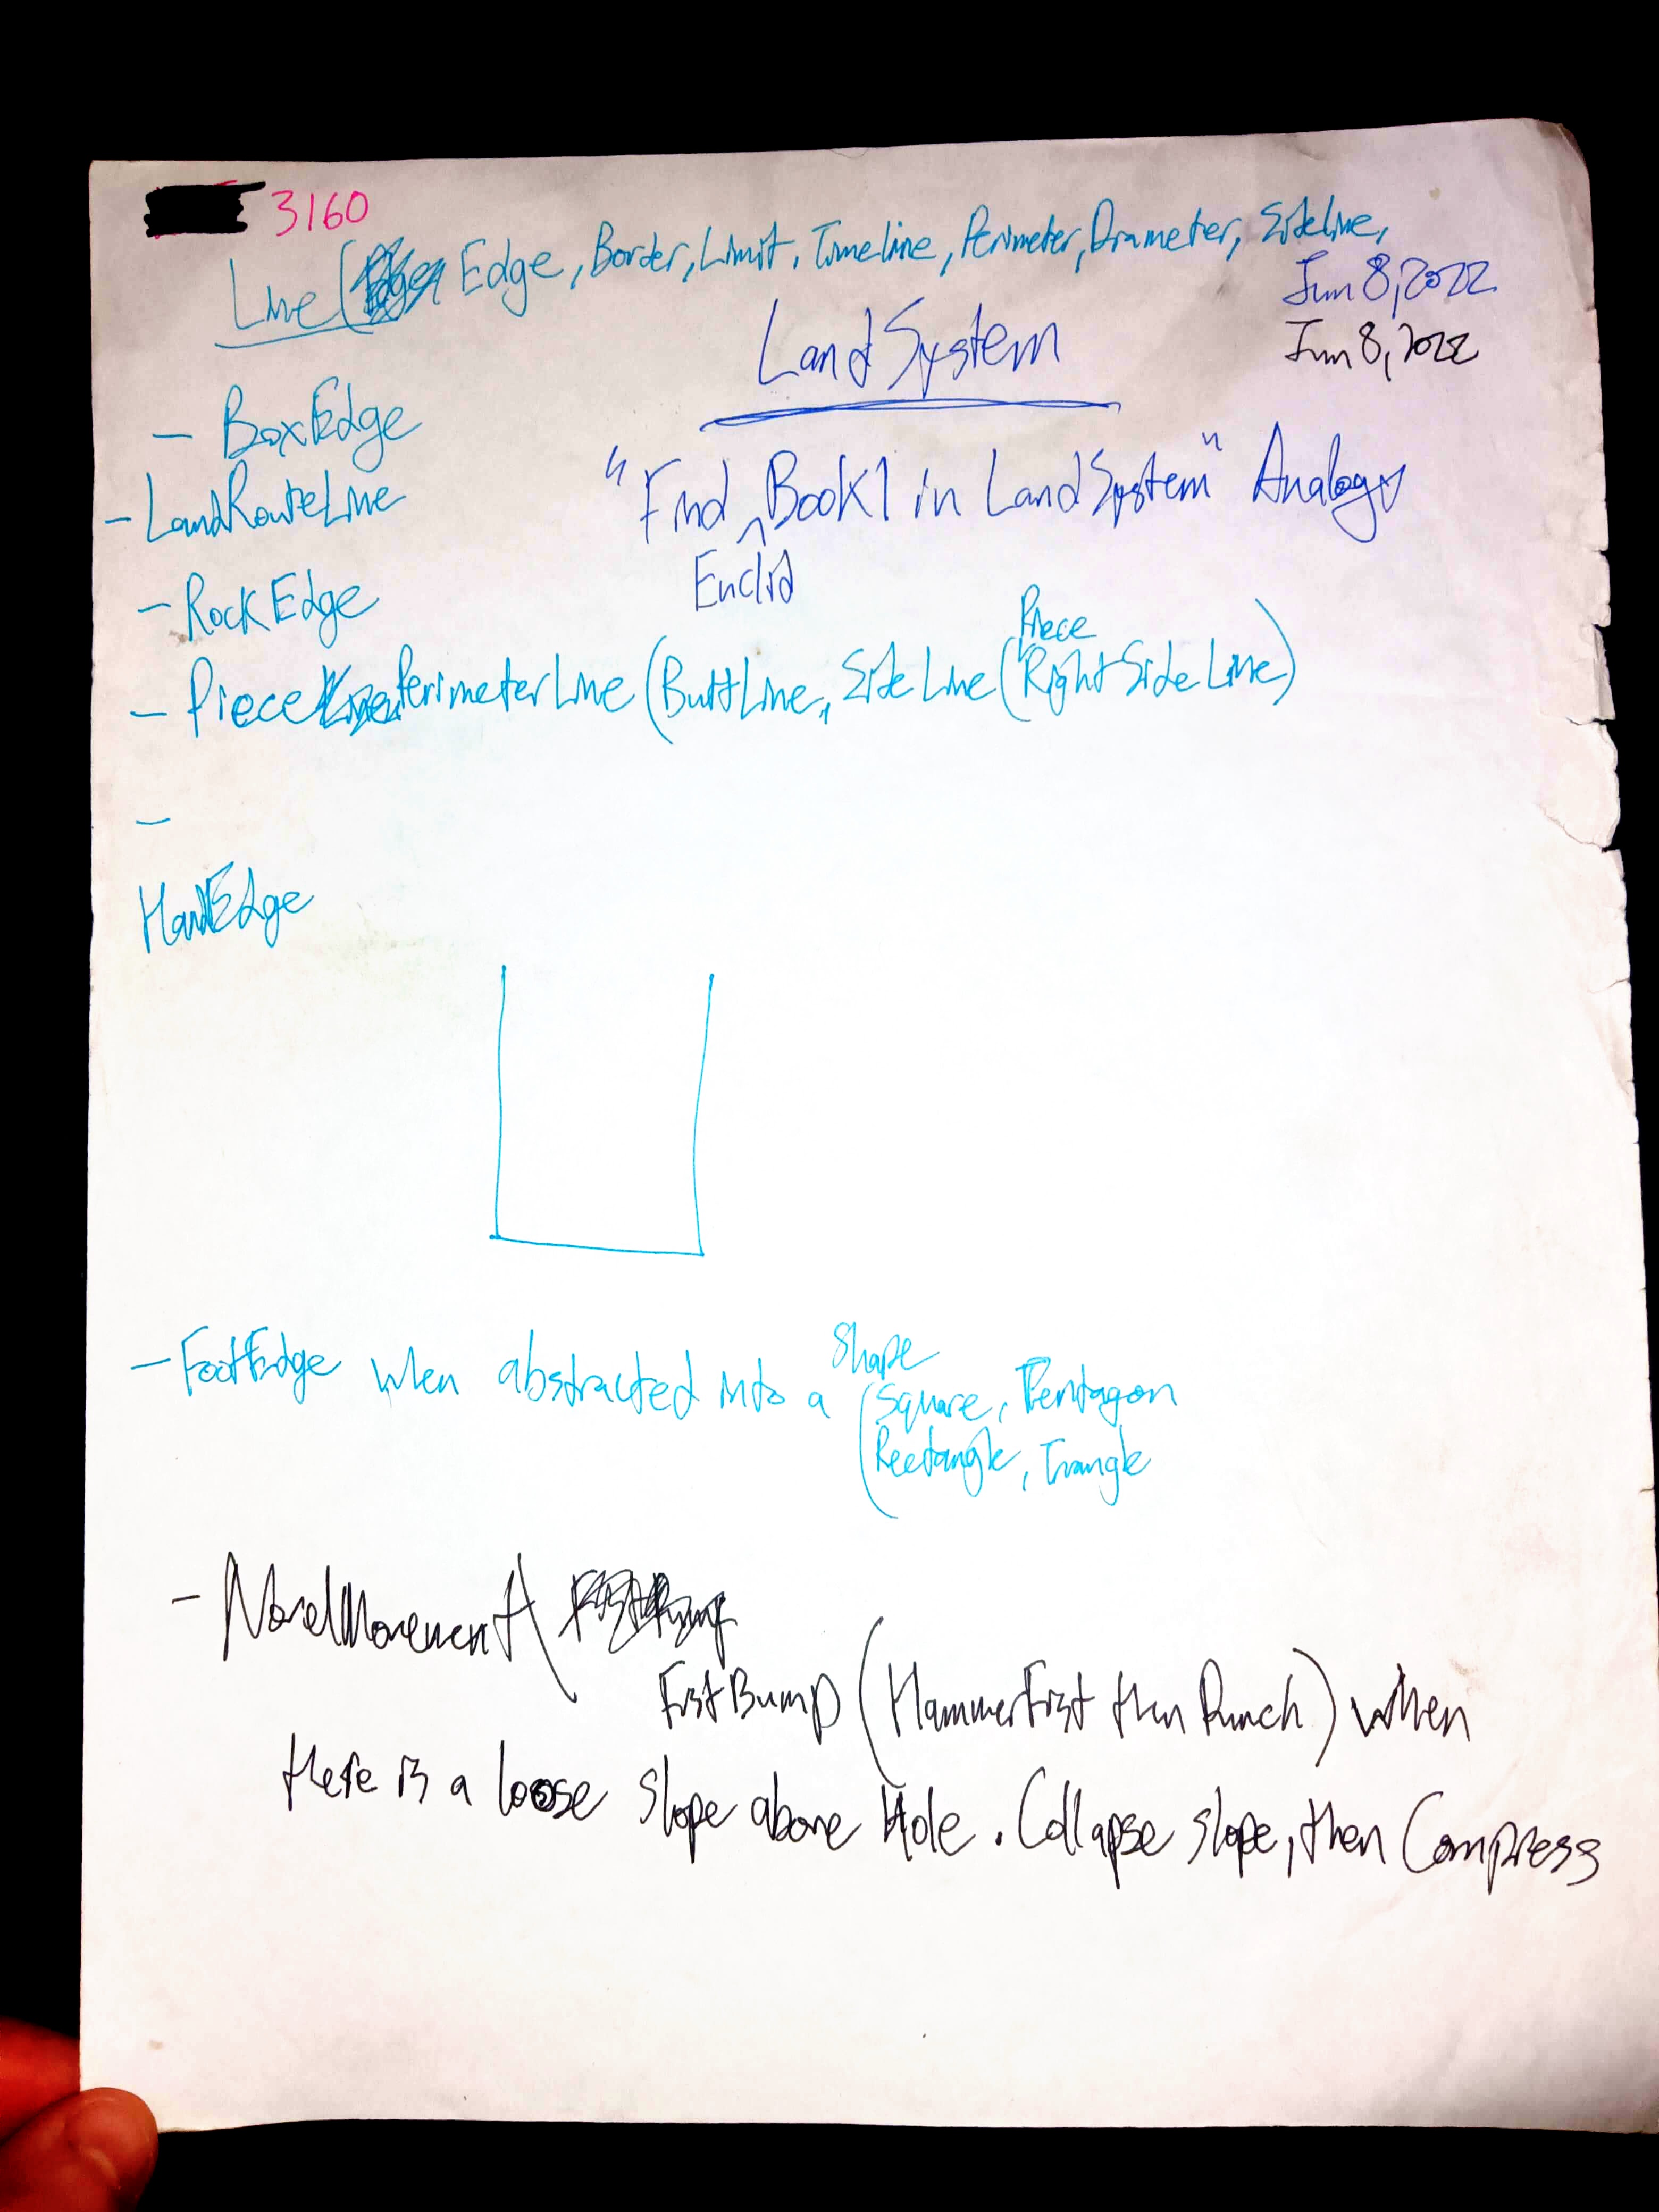 3160
Line (Edge, Border, Limit, Timeline, Perimeter, Diameter, Sideline,
Jun 8, 2022
Jun 8, 2022
LandSystem
"Find Book1 in LandSystem" Analogy
^
Euclid
- BoxEdge
- LandRouteLine
- RockEdge
- Piece PerimeterLine (ButtLine, SideLine (Piece RightSideLine)
-
HandEdge
- FootEdge when abstracted into a Shape
(Square, Pentagon
Rectangle, Triangle
- NovelMovement (
FistBump (HammerFist then Punch) when
there is a loose slope above Hole. Collapse slope, then Compress